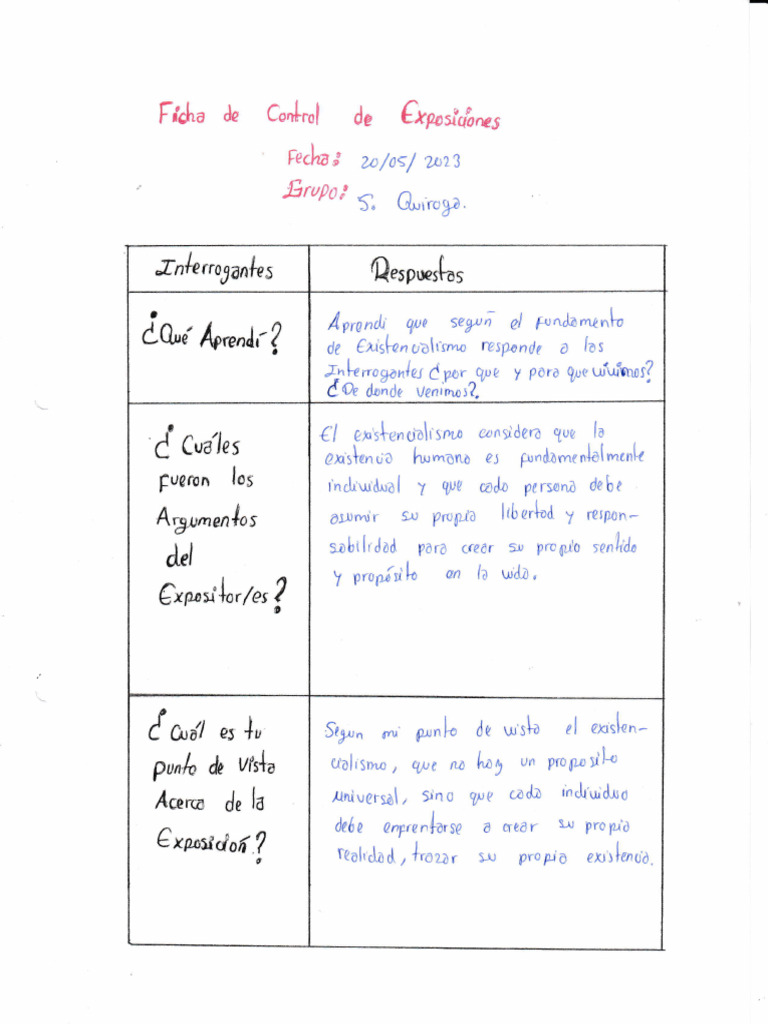 Ficha de Control de Exposiciones
Fecha: 20/05/2023
Grupo: S. Quiroga.
Interrogantes
Respuestas
¿Qué Aprendí?
Aprendi que según el fundamento
de Existencualismo responde a las
Interrogantes ¿por que y para que vivimos?
¿De donde venimos?.
¿Cuáles
fueron los
Argumentos
del
Expositor/es?
El existencialismo considera que la
existencia humana es fundamentalmente
individual y que cada persona debe
asumir su propia libertad y respon-
sabilidad para crear su propio sentido
y propósito en la vida.
¿Cuál es tu
punto de vista
Acerca de la
Exposición?
Segun mi punto de vista el existen-
cialismo, que no hay un proposito
universal, sino que cada individuo
debe enfrentarse a crear su propia
realidad, trazar su propia existencia.